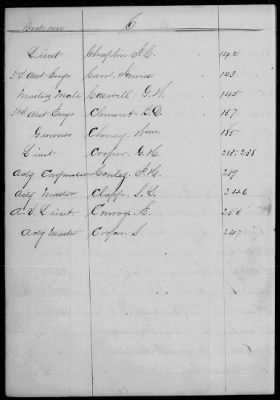 C
Lieut Chaplin J. C. 140
3rd Asst Engr Carr James 143
Masters Mate Caswell G. W. 145
3rd Asst Engr Clement 157
Gunner Cheney Wm. 185
Lieut Cooper G. H. 211. 238
Actg Carpenter Conley J. H. 219
Actg Master Clapp S. C. 246
A. V. Lieut Conroy E. 256
Actg Master Cooper S. 247